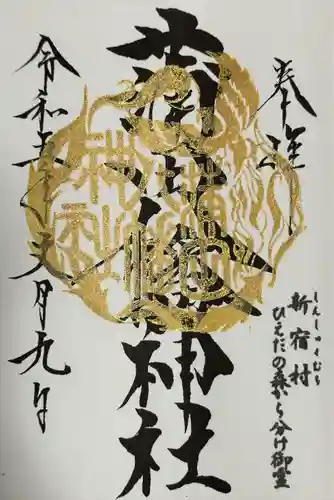 奉拝
新宿村
しんしゅくむら
ひえだの森から分け御霊
八幡神社
令和五年六月九日